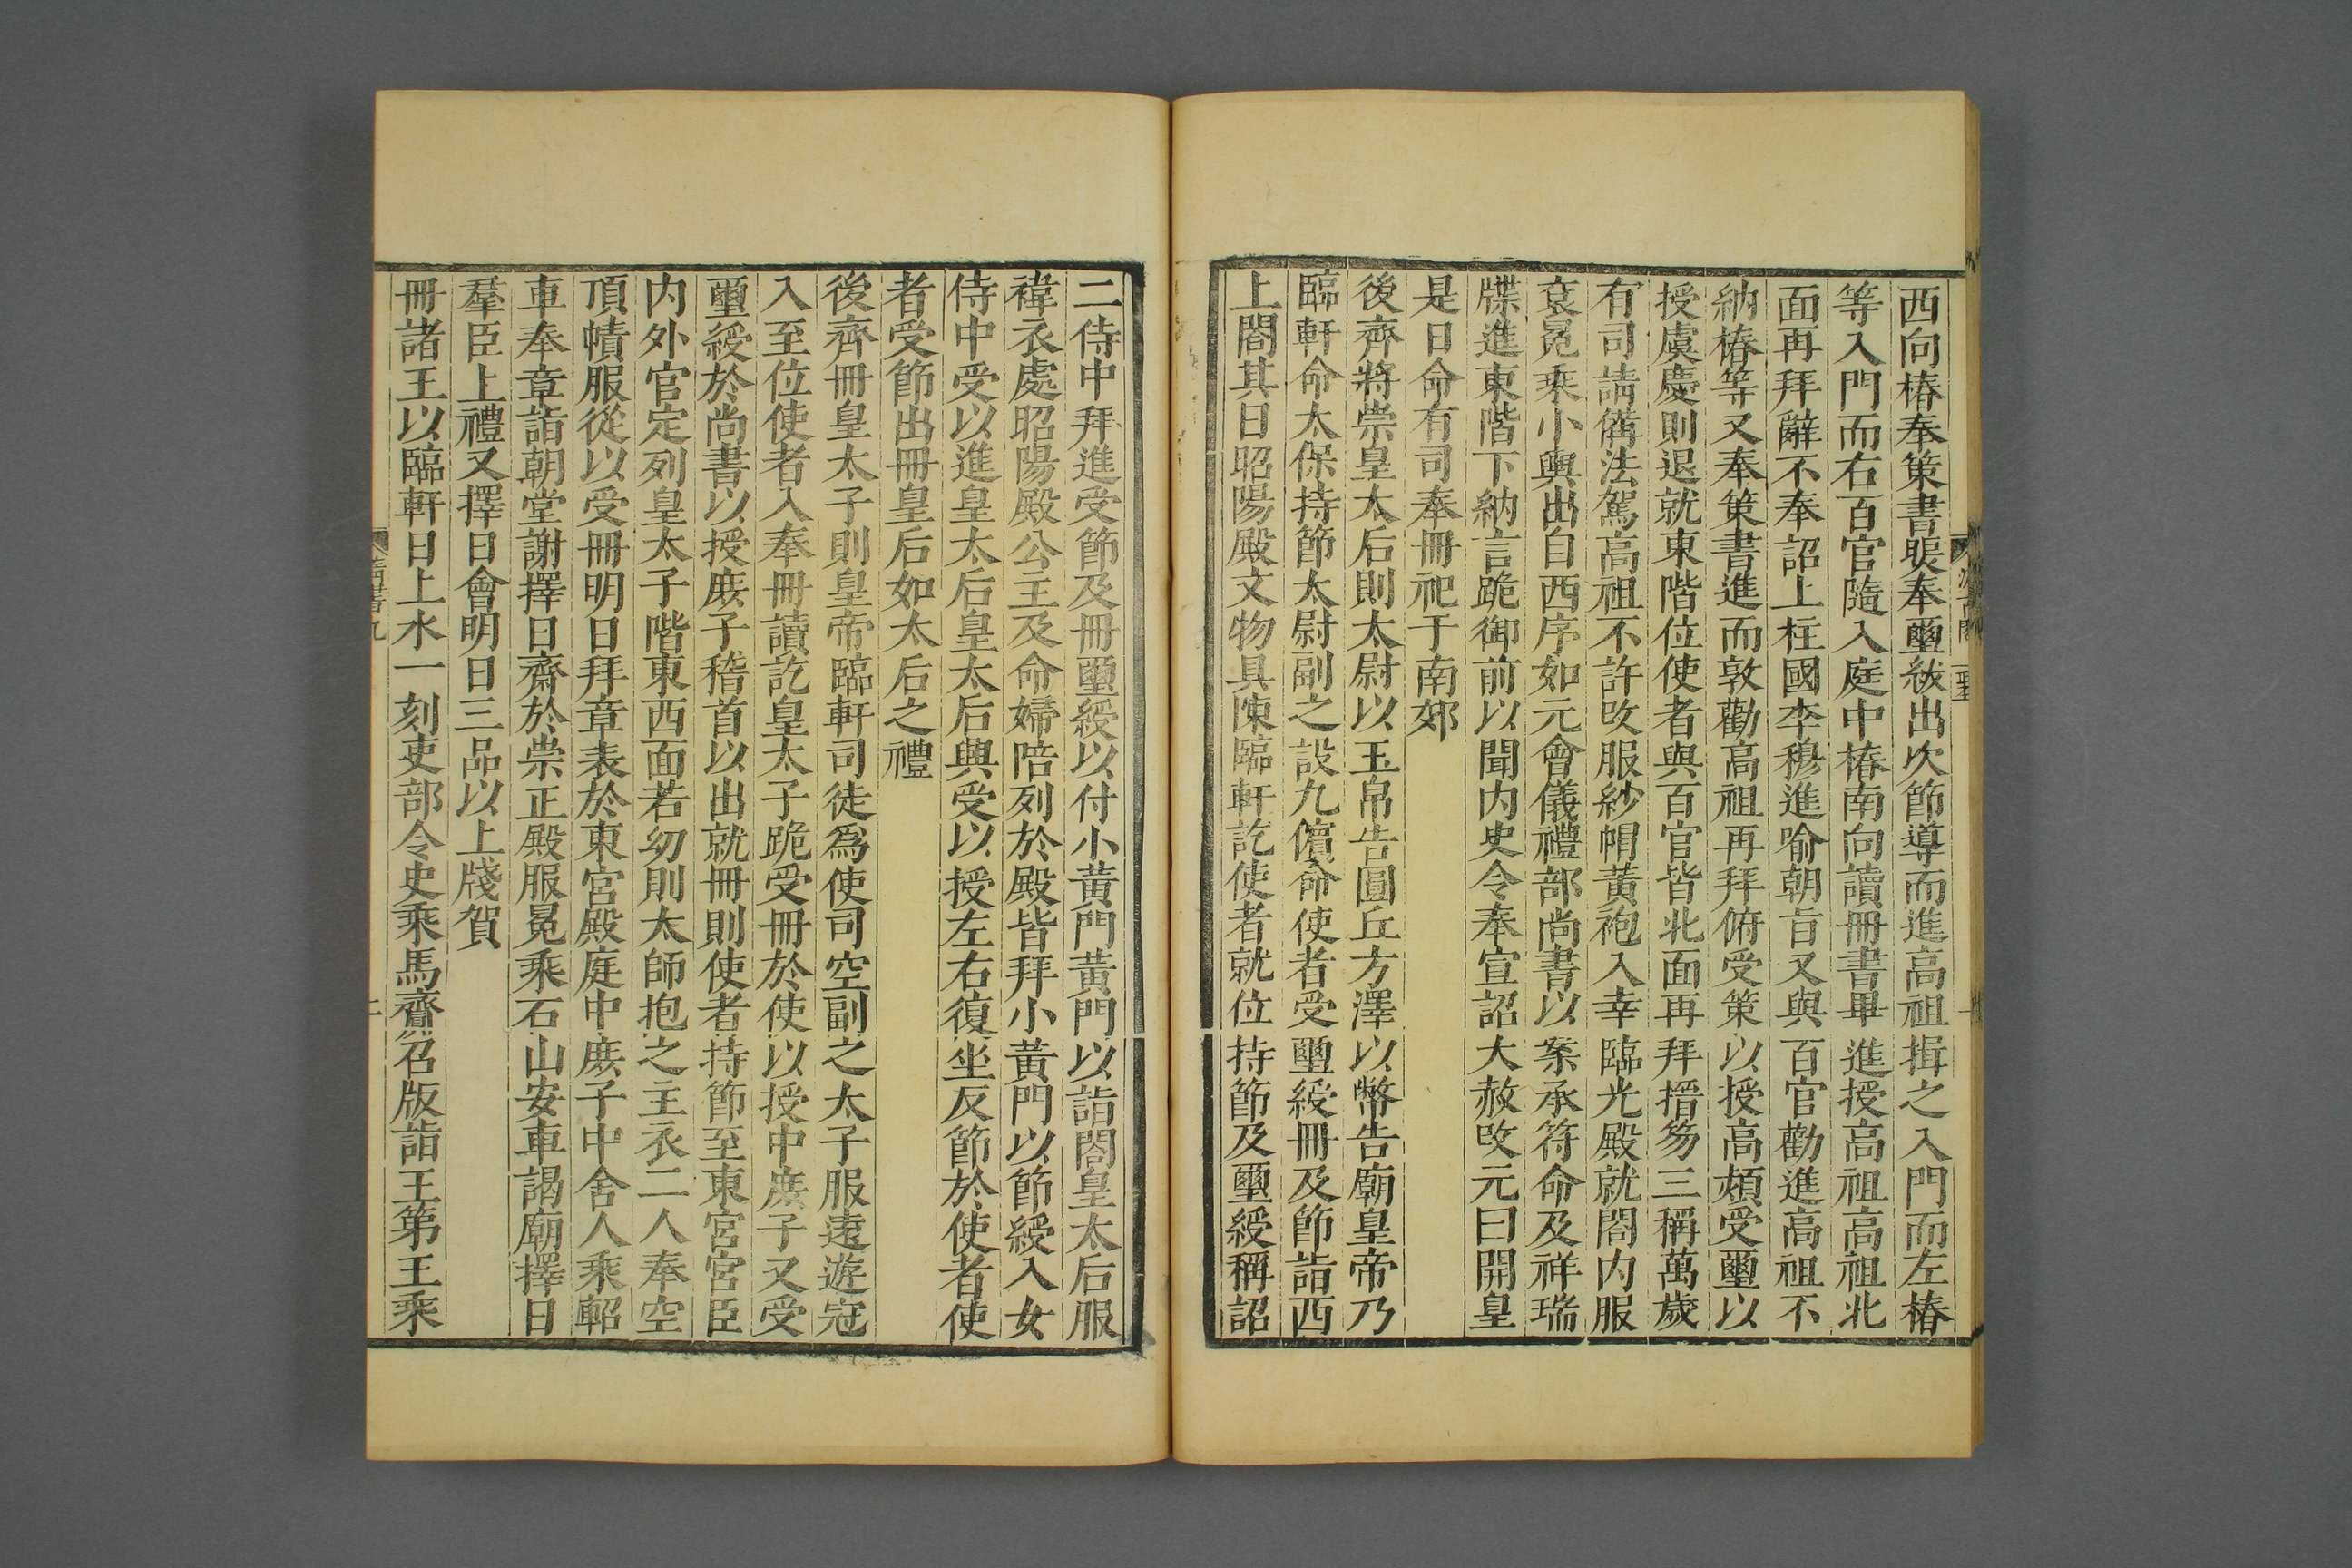 西向椿奉策書𬀩奉璽紱出次節導而進高祖揖之入門而左椿
等入門而右百官隨入庭中椿南向讀冊書畢進授高祖高祖北
面再拜辭不奉詔上柱國李穆進喻朝旨又與百官勸進高祖不
納椿等又奉策書進而敦勸高祖再拜俯受策以授高熲受璽以
授虞慶則退就東階位使者與百官皆北面再拜搢笏三稱萬歲
有司請備法駕高祖不許改服紗帽黃袍入幸臨光殿就閤內服
袞冕乘小輿出自西序如元會儀禮部尚書以案承符命及祥瑞
牒進東階下納言跪御前以聞內史令奉宣詔大赦改元曰開皇
是日命有司奉冊祀于南郊
後齊將崇皇太后則太尉以玉帛告圓丘方澤以幣告廟皇帝乃
臨軒命太保持節太尉副之設九儐命使者受璽綬冊及節詣西
上閤其日昭陽殿文物具陳臨軒訖使者就位持節及璽綬稱詔
二侍中拜進受節及冊璽綬以付小黃門黃門以詣閤皇太后服
褘衣處昭陽殿公主及命婦陪列於殿皆拜小黃門以節綬入女
侍中受以進皇太后皇太后興受以授左右復坐反節於使者使
者受節出冊皇后如太后之禮
後齊冊皇太子則皇帝臨軒司徒爲使司空副之太子服遠遊冠
入至位使者入奉冊讀訖皇太子跪受冊於使以授中庶子又受
璽綬於尚書以授庶子稽首以出就冊則使者持節至東宮宮臣
內外官定列皇太子階東西面若幼則太師抱之主衣二人奉空
頂幘服從以受冊明日拜章表於東宮殿庭中庶子中舍人乘軺
車奉章詣朝堂謝擇日齋於崇正殿服冕乘石山安車謁廟擇日
羣臣上禮又擇日會明日三品以上牋賀
冊諸王以臨軒日上水一刻吏部令史乘馬齎召版詣王第王乘